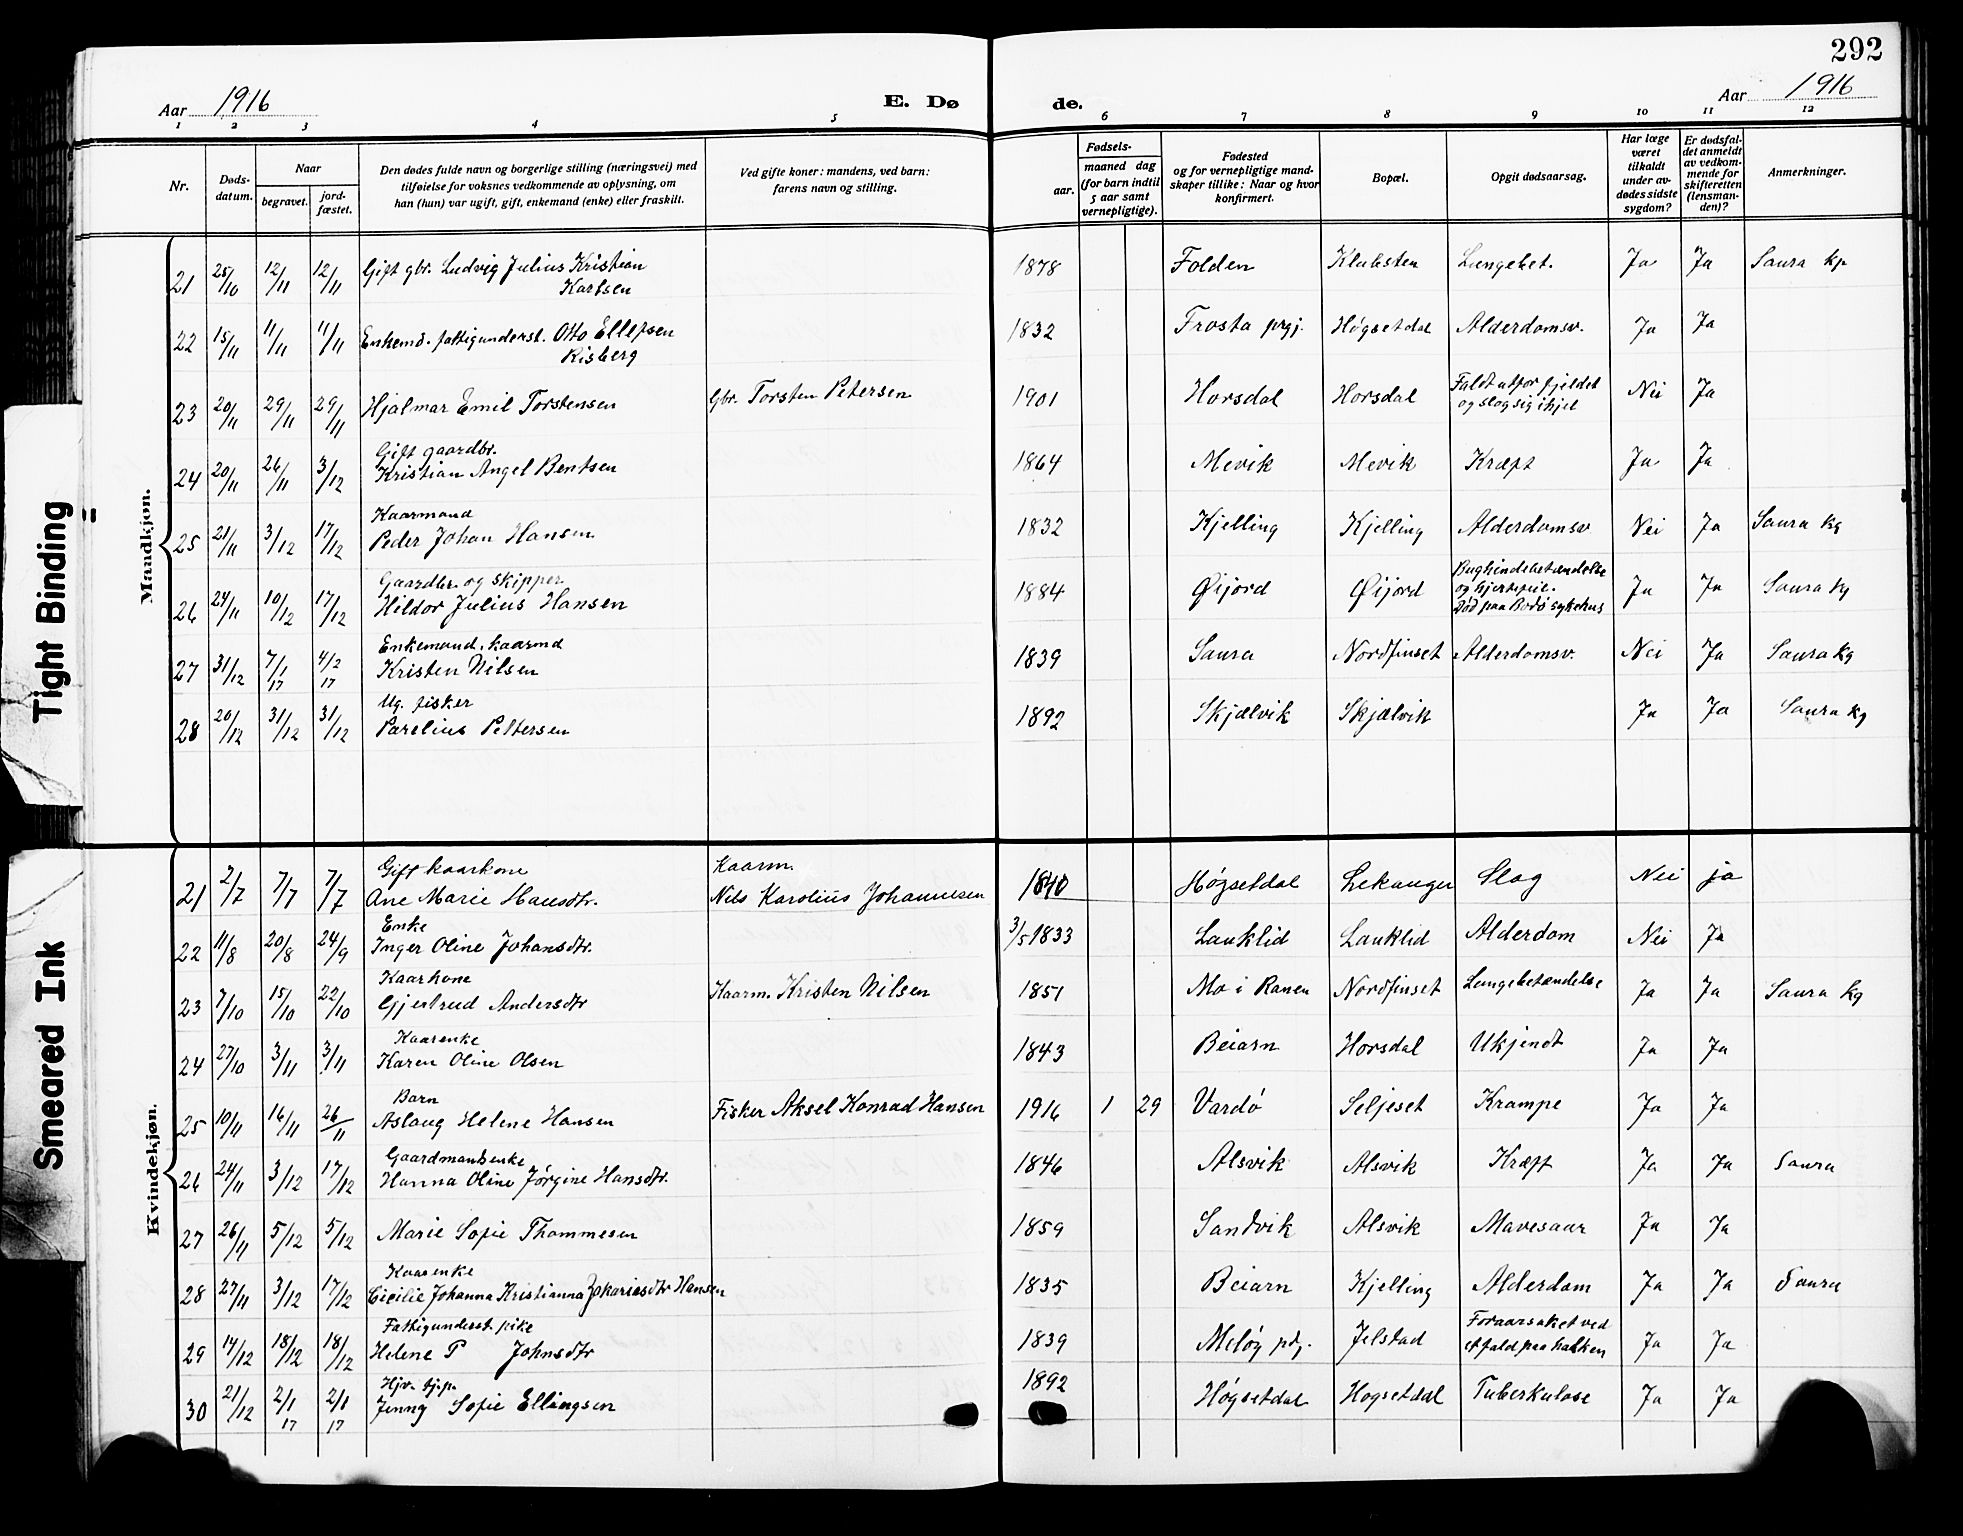 292
Aar 1916
E. Dø
de.
Aar 1916
1 2 3 4 5 6 7 8 9 10 11 12
Nr.
Døds-
datum.
Naar
begravet.
jord-
fæstet.
Den dødes fulde navn og borgerlige stilling (næringsvei) med
tilføielse for voksnes vedkommende av oplysning, om
han (hun) var ugift, gift, enkemand (enke) eller fraskilt.
Ved gifte koner: mandens, ved barn:
farens navn og stilling.
Fødsels-
aar.
maaned dag
(for barn indtil
5 aar samt
vernepligtige).
Fødested
og for vernepligtige mand-
skaper tillike: Naar og hvor
konfirmert.
Bopæl.
Opgit dødsaarsag.
Har læge
været
tilkaldt
under av-
dødes sidste
sygdom?
Er dødsfal-
det anmeldt
av vedkom-
mende for
skifteretten
(lensman-
den)?
Anmerkninger.
Mandkjøn.
21 25/10 12/11 12/11 Gift gbr. Ludvig Julius Kristian 1878 Folden Klubsten Lungebet. Ja Ja Saura kp
Karlsen
22 15/11 11/11 11/11 Enkemd. fattigunderst. Otto Ellefsen 1832 Frosta prgj. Høgsetdal Alderdomsv. Ja Ja
Risberg
23 20/11 29/11 29/11 Hjalmar Emil Torstensen Gbr. Torsten Petersen 1901 Horsdal Horsdal Faldt utfor fjeldet Nei Ja
og slog sig ihjel
Gift gaardbr.
24 20/11 26/11 3/12 Kristian Angel Bentsen 1864 Mevik Mevik Kræft Ja Ja
Kaarmand
25 21/11 3/12 17/12 Peder Johan Hansen 1832 Kjelling Kjelling Alderdomsv Nei Ja Saura kg
Gaardbr. og skipper
26 24/11 10/12 17/12 Hildor Julius Hansen 1884 Øijord Øijord Bughindebetændelse Ja Ja Saura kg
og hjertefeil.
Død paa Bodø sykehus
Enkemand, kaarmd
27 31/12 7/1 17 4/2 17 Kristen Nilsen 1839 Saura Nordfinset Alderdomsv. Nei Ja Saura kg
Ug. fisker
28 20/12 31/12 31/12 Parelius Pettersen 1892 Skjælvik Skjælvik Ja Ja Saura kg
Kvindekjøn.
Gift kaarkone Kaarm.
21 2/7 7/7 7/7 Ane Marie Hansdtr. Nils Karolius Johannesen 1840 Høgsetdal Lekanger Slag Nei ja
Enke
22 11/8 20/8 24/9 Inger Oline Johansdtr. 3/5 1833 Lauklid Lauklid Alderdom Nei Ja
Kaarkone
23 7/10 15/10 22/10 Gjertrud Andersdtr Kaarm. Kristen Nilsen 1851 Mo i Ranen Nordfinset Lungebetændelse Ja Ja Saura kg
Kaarenke
24 27/10 3/11 3/11 Karen Oline Olsen 1843 Beiarn Horsdal Ukjendt Ja Ja
Barn
25 10/11 16/11 26/11 Aslaug Helene Hansen Fisker Aksel Konrad Hansen 1916 1 29 Vardø Seljeset Krampe Ja Ja
Gaardmandsenke
26 24/11 3/12 17/12 Hanna Oline Jørgine Hansdtr. 1846 Alsvik Alsvik Kræft Ja Ja Saura
27 26/11 5/12 5/12 Marie Sofie Thommesen 1859 Sandvik Alsvik Mavesaar Ja Ja
Kaarenke
28 27/11 3/12 17/12 Cicilie Johanna Kristianna Zakariasdtr Hansen 1835 Beiarn Kjelling Alderdom Ja Ja Saura
Fattigunderst. pike
29 14/12 18/12 18/12 Helene P Johnsdtr 1839 Meløy pdg. Jelstad Foraarsaket ved Ja Ja
et fald paa bakken
Hjv. tj.p.
30 21/12 2/1 17 2/1 17 Jenny Sofie Ellingsen 1892 Høgsetdal Hogsetdal Tuberkulose Ja Ja
Tight Binding
Smeared Ink